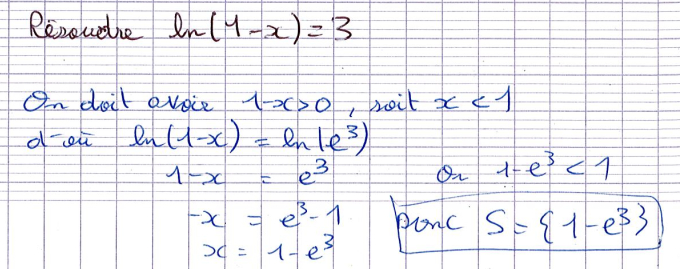 Résoudre ln(1-x)=3
On doit avoir 1-x>0, soit x<1
d'où ln(1-x) = ln(e³)
1-x = e³
Or 1-e³<1
-x = e³-1
donc S={1-e³}
x = 1-e³